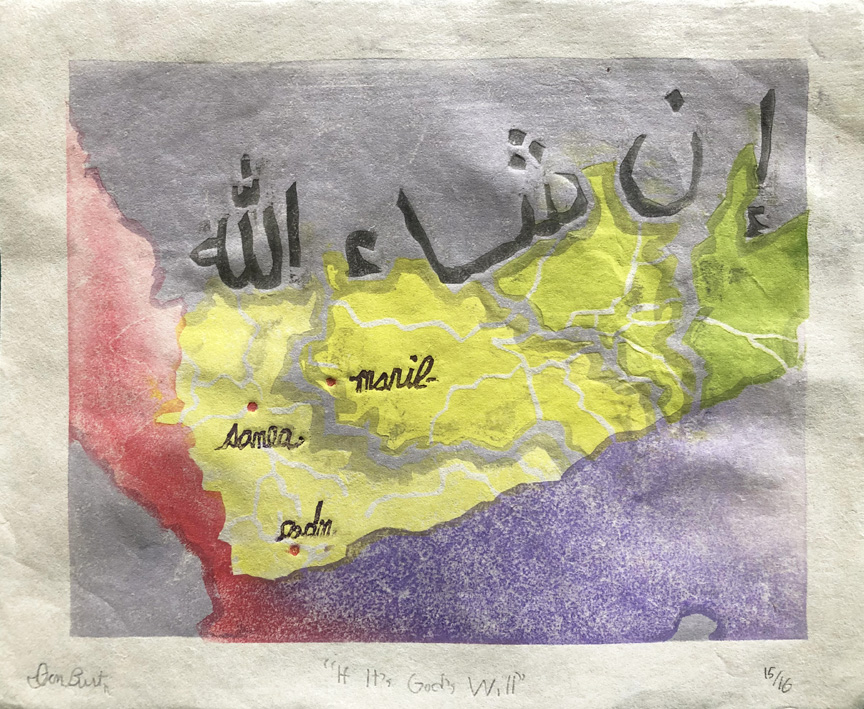 إن شاء الله
maril
sanaa
adn
"If It's God's Will"
15/16